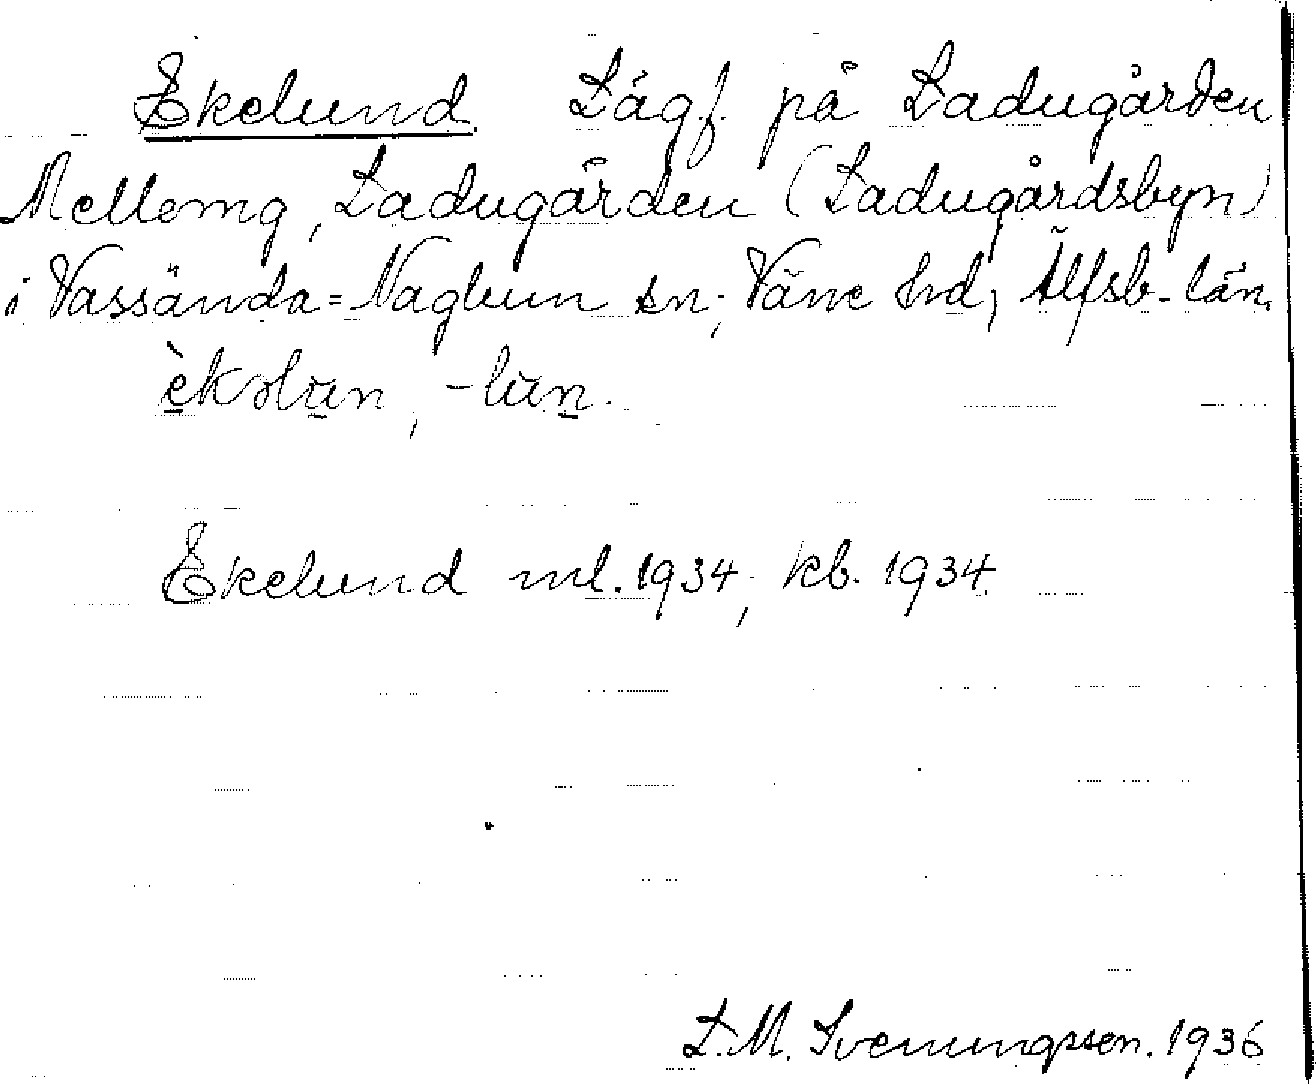 Ekelund Lägf. på Ladugården
Mellomg, Ladugården (Ladugårdsbyn)
i Vassända=Naglum sn; Väne hd, Älfsb. län.
èkəlŭn, -lŭn.
Ekelund ml. 1934, kb. 1934.
L. M. Svenungsson. 1936